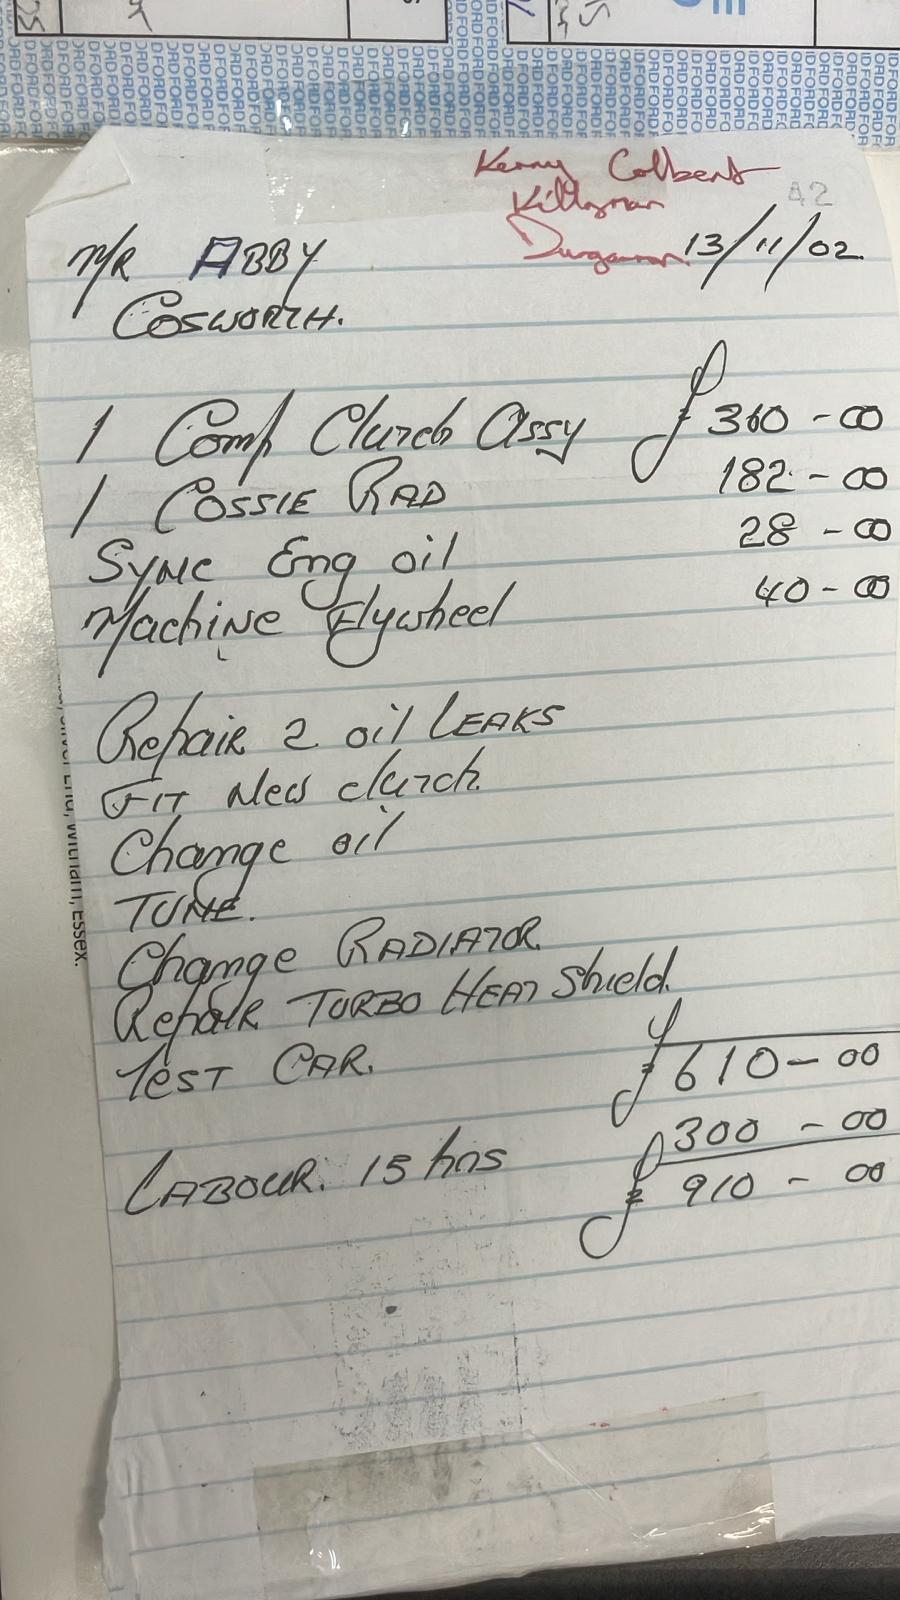 Kenny Colbert
Killyman
Dungannon 13/11/02
42
M/R ABBY
COSWORTH.
1 Comp Clutch Assy £360-00
1 COSSIE RAD 182-00
SYNC Eng oil 28-00
Machine Flywheel 40-00
Repair 2 oil LEAKS
FIT New clutch
Change oil
TUNE.
Change RADIATOR
Repair TURBO HEAT Shield.
TEST CAR.
£610-00
LABOUR. 15 hrs 300-00
£910-00
Witham, Essex.